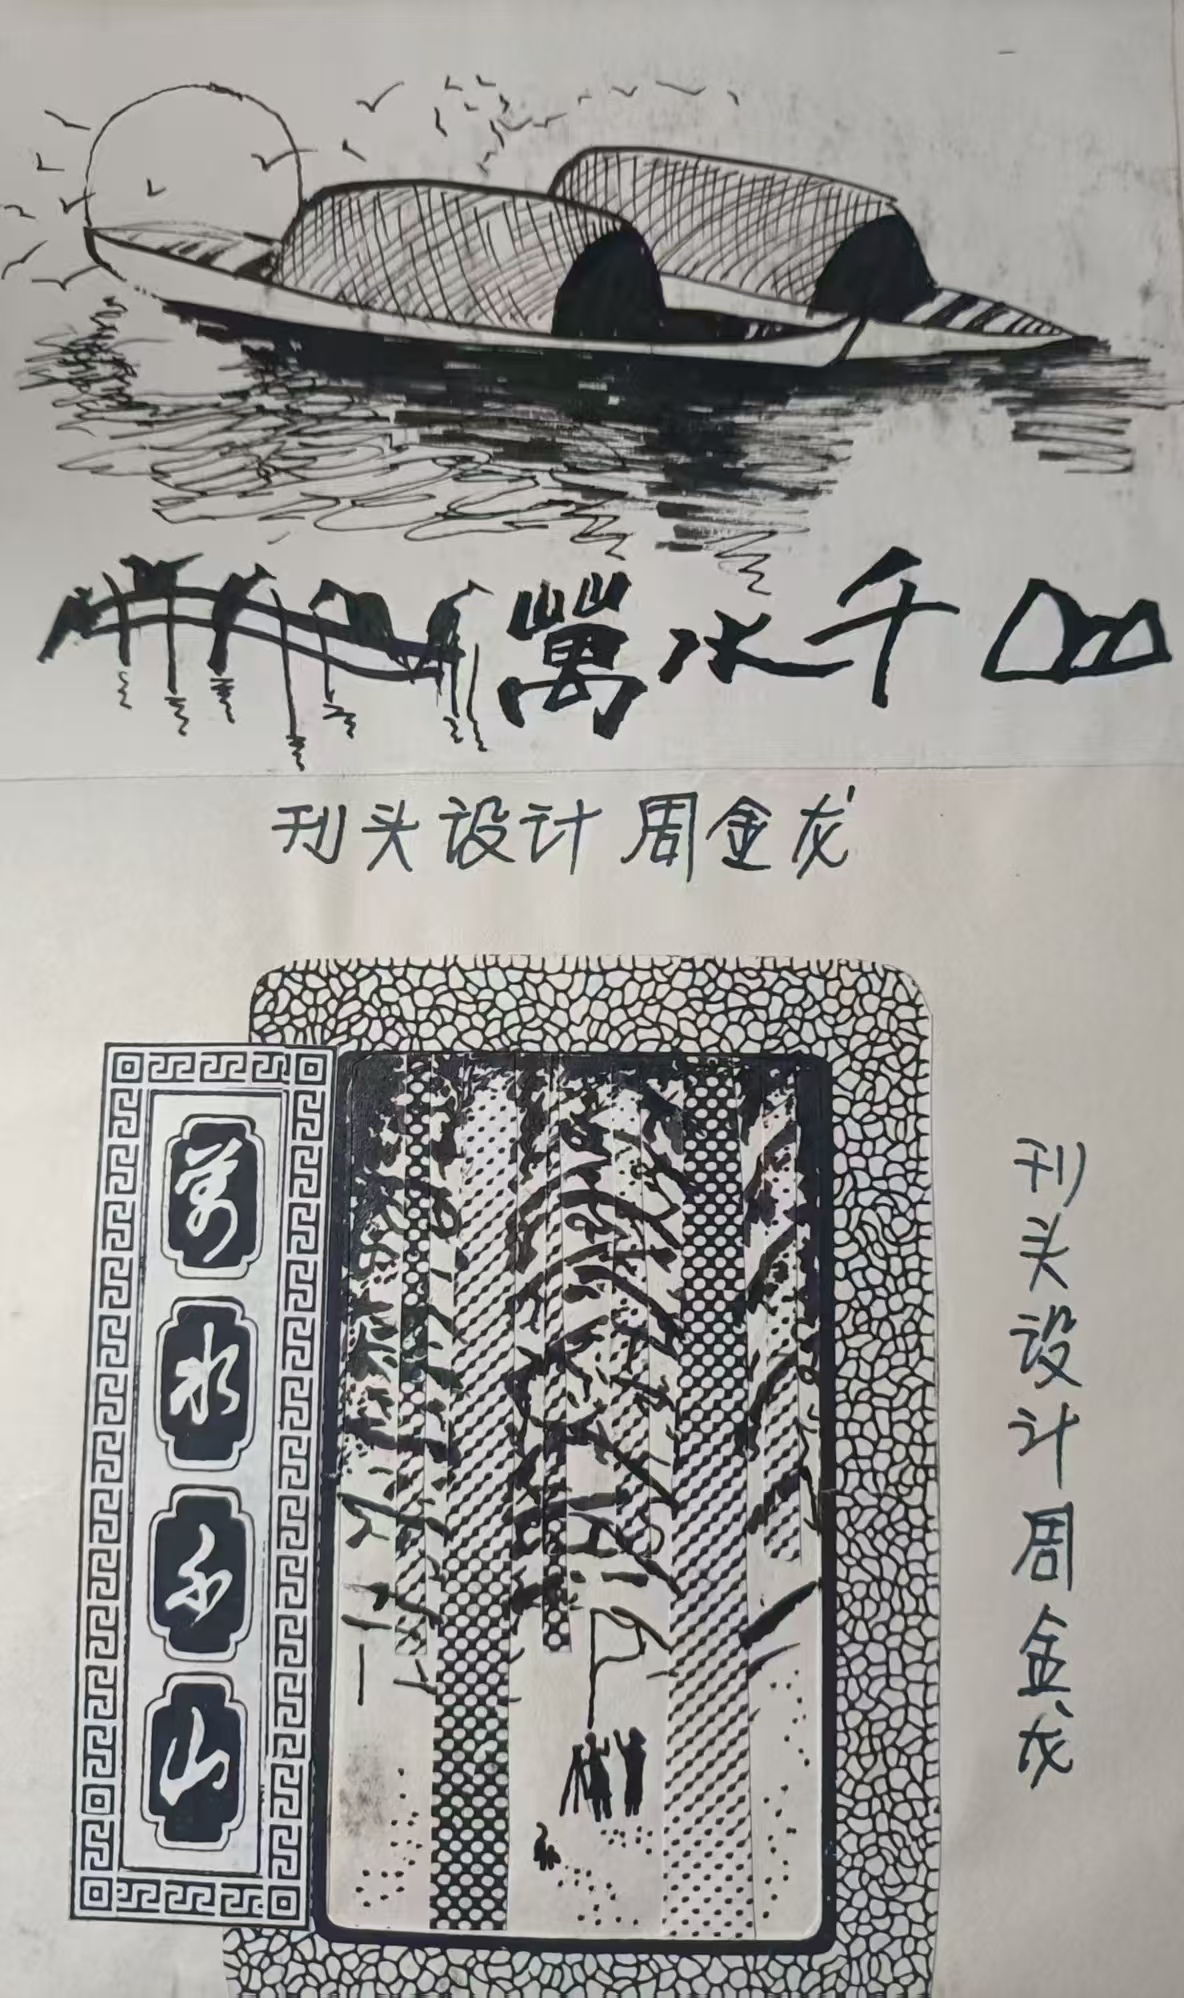 萬水千山
刊头设计 周金龙
萬水千山
刊头设计周金龙